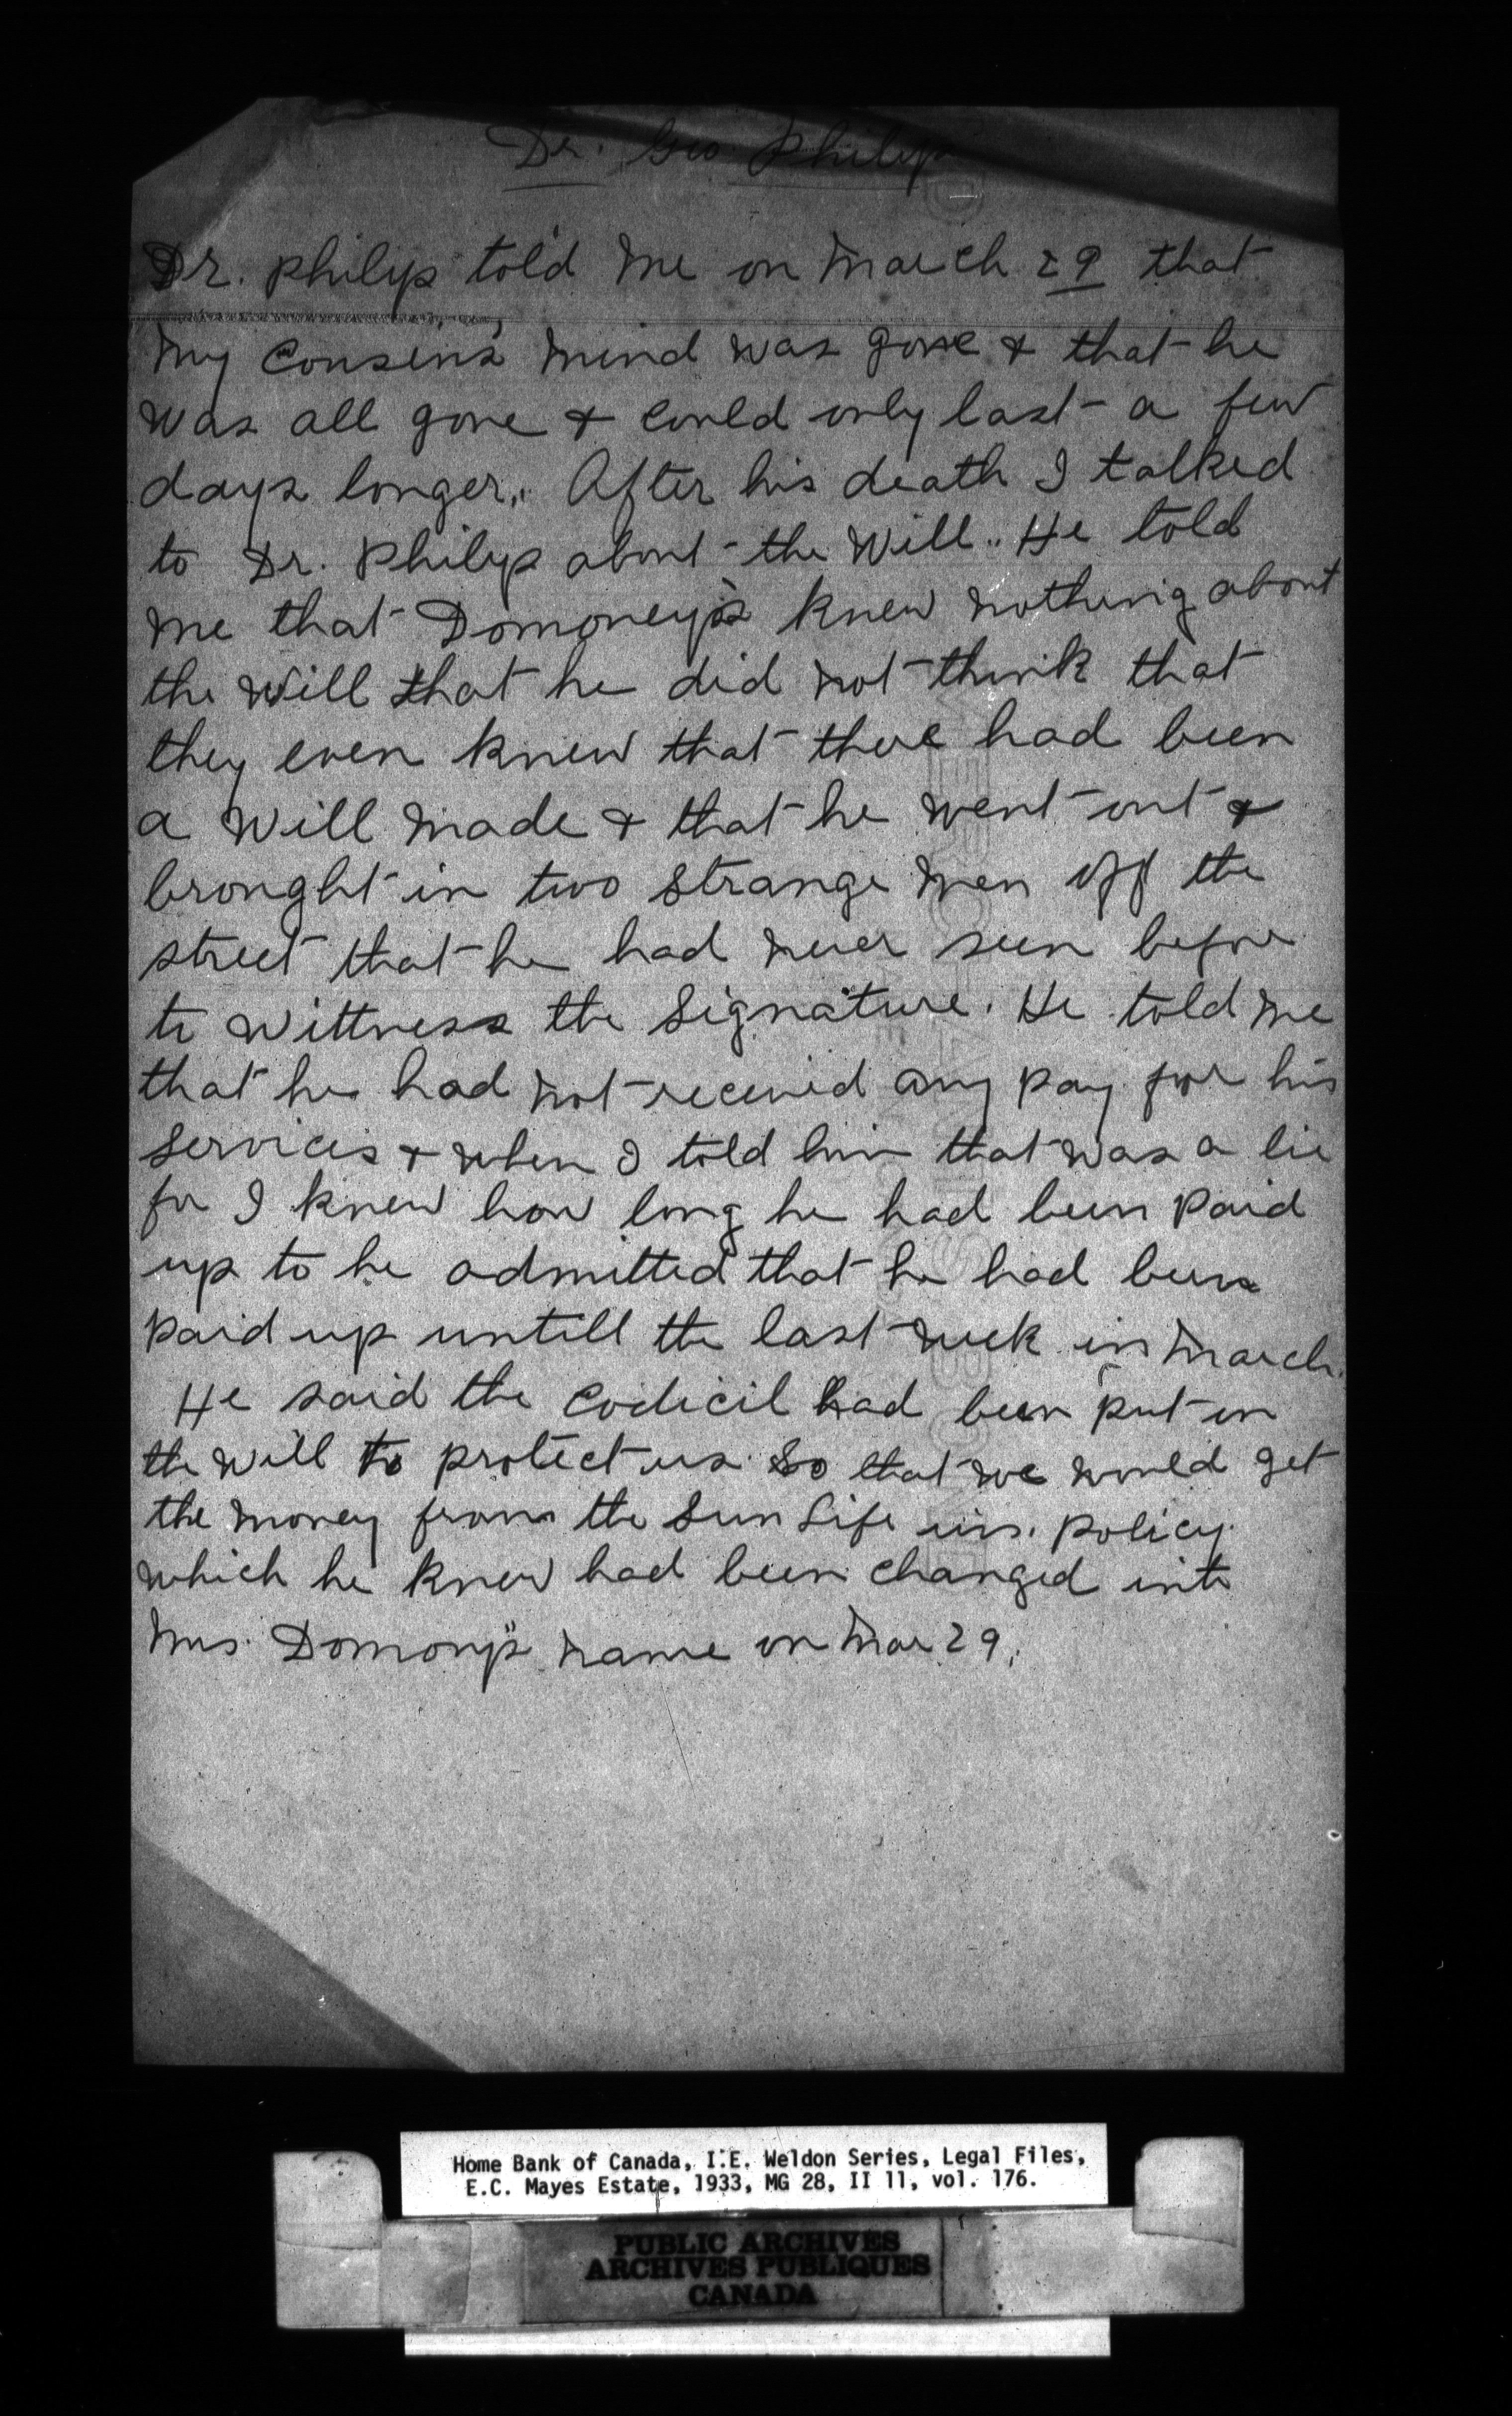 Dr. Geo. Philip
Dr. Philip told me on March 29 that
my Cousen's mind was gone & that he
was all gone & could only last a few
days longer. After his death I talked
to Dr. Philip about the Will. He told
me that Domoney's knew nothing about
the Will that he did not think that
they even knew that there had been
a Will made & that he went out &
brought in two strange men off the
street that he had never seen before
to Wittness the Signature. He told me
that he had not received any pay for his
services & when I told him that was a lie
for I knew how long he had been paid
up to he admitted that he had been
paid up untill the last week in March.
He said the Codicil had been put in
the Will to protect us so that we would get
the money from the Sun Life ins. policy
which he knew had been changed into
Mrs. Domony's name on Mar 29.
Home Bank of Canada, I.E. Weldon Series, Legal Files,
E.C. Mayes Estate, 1933, MG 28, II 11, vol. 176.
PUBLIC ARCHIVES
ARCHIVES PUBLIQUES
CANADA